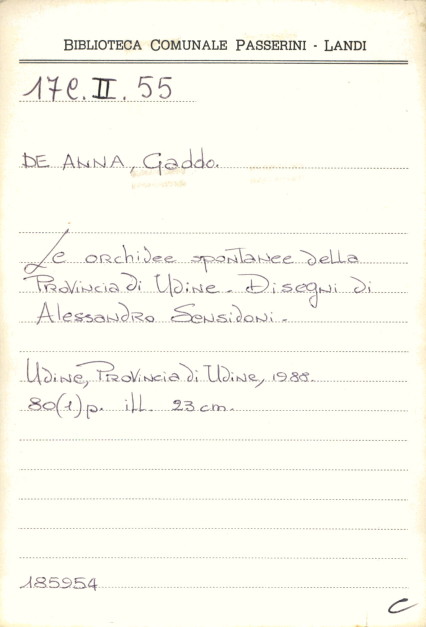 BIBLIOTECA COMUNALE PASSERINI - LANDI
17C.II.55
DE ANNA, Gaddo.
Le orchidee spontanee della
Provincia di Udine. Disegni di
Alessandro Sensidoni.
Udine, Provincia di Udine, 1988.
80(1)p. ill. 23 cm.
185954
C